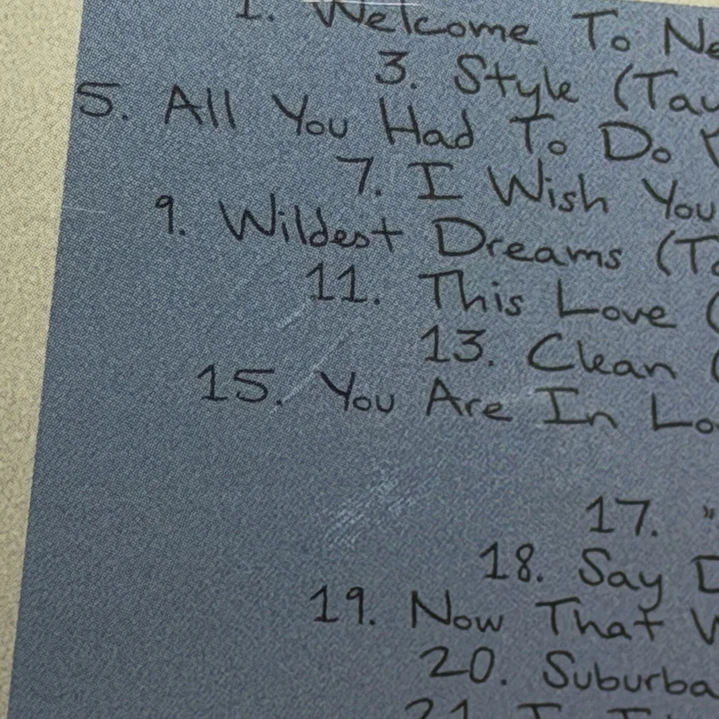 1. Welcome To Ne
3. Style (Tay
5. All You Had To Do
7. I Wish You
9. Wildest Dreams (Ta
11. This Love (
13. Clean (
15. You Are In Lo
17. "
18. Say D
19. Now That W
20. Suburba
21. I